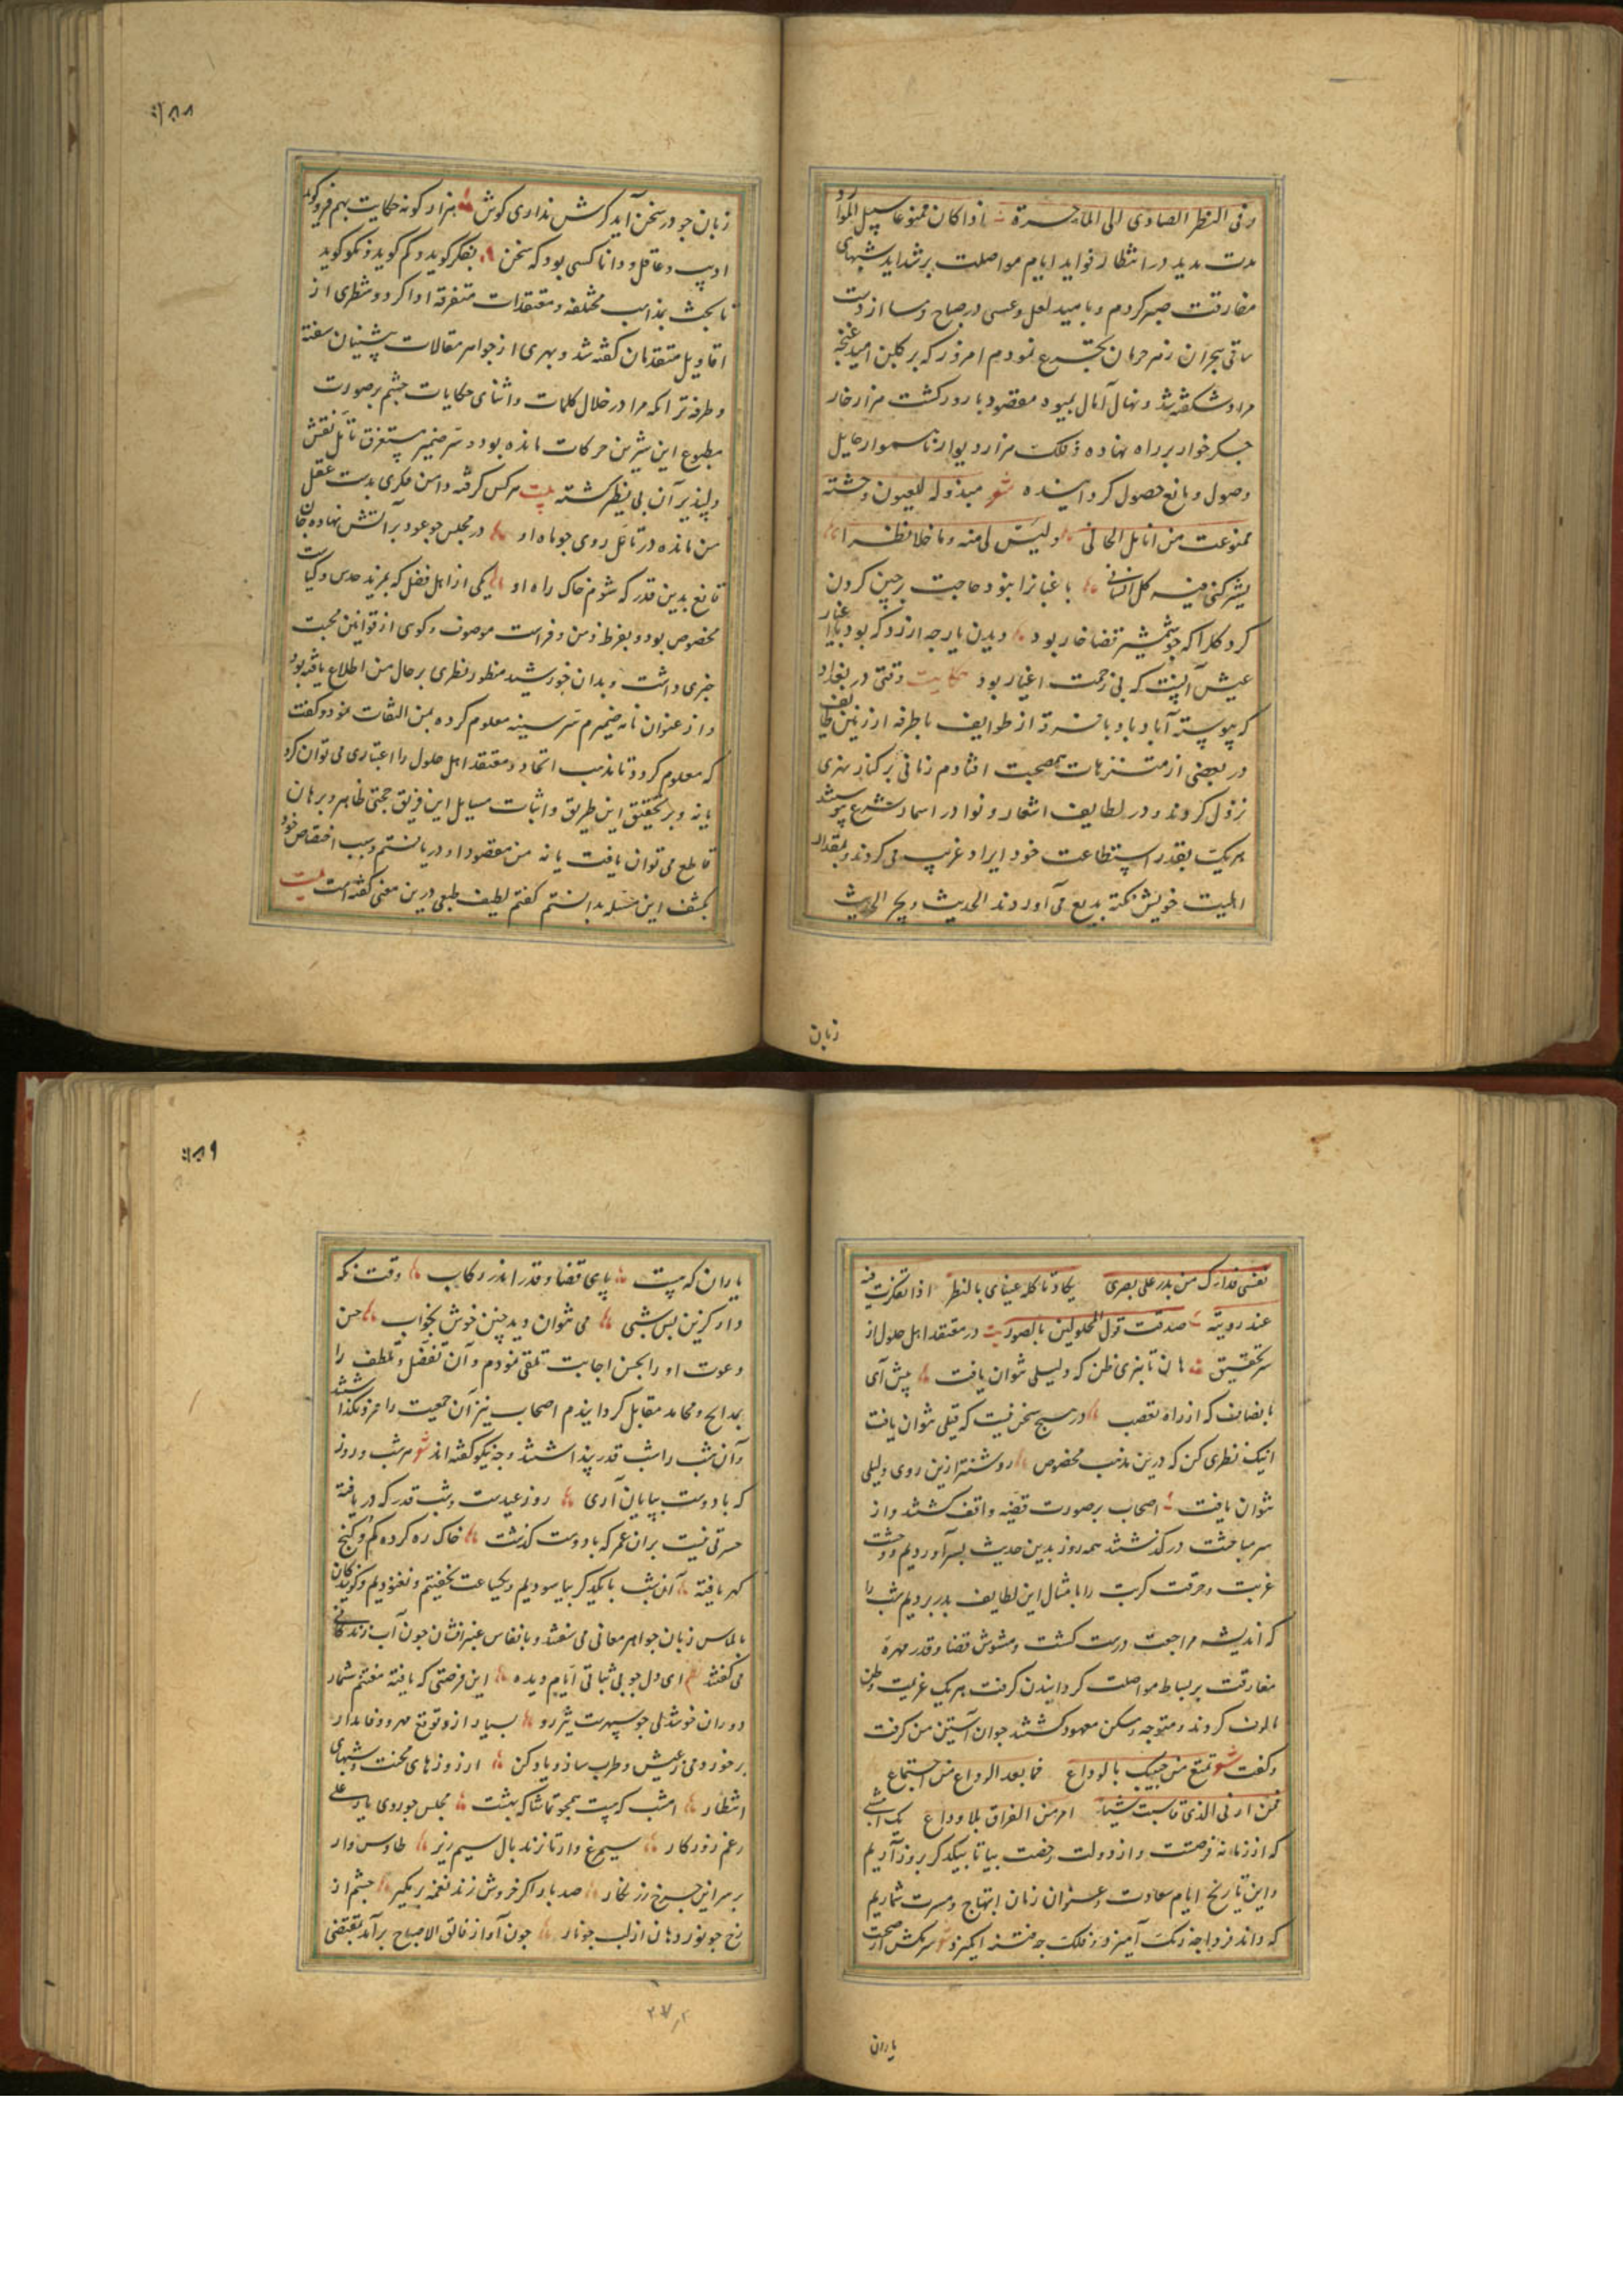 وفی النظر الصادی الی الماء حسرة اذا کان ممنوعا سبیل الموارد
مدت مدید در انتظار فواید ایام مواصلت بر شداید شبهای
مفارقت صبر کردم و بامید لعل و عسی در صباح و مسا از دست
ساقی هجران زهر حرمان تجرع نمودم امروز که بر گلبن امید غنچه
مراد شکفته شد و نهال آمال بمیوه مقصود بارور گشت هزار خار
جگر خوار بر راه نهاده و فلک هزار دیوار ناهموار حایل
وصول و مانع حصول گردانیده شعر مبذولة للعیون وجنته
ممنوعة من انامل الجانی ولیس لی منه وما خلا نظرا
یشرکنی فیه کل انسان باغبانرا نبود حاجت پرچین کردن
گرد گلرا که چو شمشیر قضا خار بود دیدن یار چه ارزد که بود با اغیار
عیش آنست که بی زحمت اغیار بود حکایت وقتی در بغداد
که پیوسته آباد باد با نفری از طوایف با طرفه از زمین طایف
در بعضی از متنزهات هم صحبت افتادم زمانی بر کنار نهری
نزول کردند و در لطایف اشعار و نوادر اسمار شرع پیوستند
هریک بقدر استطاعت خود ایراد غریب می کردند و بمقدار
اهلیت خویش نکته بدیع می آوردند الحدیث یجر الحدیث
زبان
۱۸۸
زبان جو در سخن آید گرش نداری گوش هزار گونه حکایت بهم فرو گوید
ادیب و عاقل و دانا کسی بود که سخن بفکر گوید و کم گوید و نکو گوید
تا بحث بمذاهب مختلفه و معتقدات متفرقه ادا کرد و شطری از
اقاویل متقدمان گفته شد و بهری از جواهر مقالات پیشینیان سفته
و طرفه تر آنکه مرا در خلال کلمات و اثنای حکایات چشم بر صورت
مطبوع این شیرین حرکات مانده بود و سر ضمیر مستغرق تامل نقش
دلپذیر آن بی نظیر گشته بیت هر کس گرفته دامن فکری بدست عقل
من مانده در تامل روی جو ماه او در مجلس جو عود بر آتش نهاده جان
قانع بدین قدر که شوم خاک راه او یکی از اهل فضل که بمزید حدس و کیاست
مخصوص بود و بفرط ذهن و فراست موصوف و گوی از قوانین محبت
خبری داشت و بدان خورشید منظور نظری بر حال من اطلاع یافته بود
و از عنوان نامه ضمیرم سر سینه معلوم کرده بمن التفات نمود و گفت
که معلوم گردد تا مذهب اتحاد و معتقد اهل حلول را اعتباری می توان کرد
یا نه و بر تحقیق این طریق و اثبات مسایل این فریق حجتی ظاهر و برهان
قاطع می توان یافت یا نه من مقصود او دریافتم و سبب اختصاص خود
بکشف این مسله بدانستم گفتم لطیف طبعی درین معنی گفته است بیت
نفسی فداؤک من بدر علی بصری یکاد تاکله عینای بالنظر اذا تفکرت فیه
عند رویته صدقت قول الحلولین بالصور بیت در معتقد اهل حلول از
سر تحقیق هان تا نبری ظن که دلیلی نتوان یافت پیش آی
بانصاف که از راه تعصب در هیچ سخن نیست که قیلی نتوان یافت
اینک نظری کن که درین مذهب مخصوص روشنتر ازین روی دلیلی
نتوان یافت اصحاب بر صورت قضیه واقف گشتند و از
سر مباحثت در گذشتند همه روز بدین حدیث بسر آوردیم و وحشت
غربت و حرقت کربت را بامثال این لطایف بدر بردیم شب را
که اندیشه مراجعت درست گشت و مشوش قضا و قدر مهره
مفارقت بر بساط مواصلت گردانیدن گرفت هریک عزیمت وطن
مالوف کردند و متوجه مسکن معهود گشتند جوان آستین من گرفت
و گفت شعر تمتع من حبیبک بالوداع فما بعد الوداع من اجتماع
فمن ارنی الذی قاسیت شیئا امر من الفراق بلا وداع یک امشبی
که از زمانه فرصتست و از دولت رخصت بیا تا بیکدگر بروز آریم
و این تاریخ ایام سعادت و عنوان زمان ابتهاج و مسرت شماریم
که داند فردا چه رنگ آمیزد و فلک چه فتنه انگیزد شعر سر مکش از صحبت
یاران
۱۸۹
یاران که هست پای قضا و قدر اندر رکاب وقت نگه
دار کزین بس شبی می نتوان دید چنین خوش بخواب حسن
دعوت او را بحسن اجابت تلقی نمودم و آن تفضل و تلطف را
بمدایح و محامد مقابل گردانیدم اصحاب نیز آن جمعیت را فرو نگذاشتند
و آن شب را شب قدر پنداشتند و چه نیکو گفته اند شعر هر شب و روز
که با دوست بپایان آری روز عیدست و شب قدر که دریافته
حسرتی نیست بران عمر که با دوست گذشت خاک ره کرده گم و گنج
گهر یافته آن شب با یکدیگر بیاسودیم و یکساعت نخفتیم و نغنودیم و گویندگان
بالماس زبان جواهر معانی می سفتند و بانفاس عنبر افشان جون آب زندگانی
می گفتند ای دل جو بی ثباتی ایام دیده این فرصتی که یافته مغتنم شمار
دوران خوشدلی جو سپهرست تیز رو بسیار ازو توقع مهر و وفا مدار
بر خور ز می و عیش و طرب ساز و یاد کن از روزهای محنت و شبهای
انتظار امشب که هست همچو تماشاگه بهشت مجلس جو روی یار علی
رغم روزگار سیمرغ وار تا زند بال سیم ریز طاوس وار
بر سر این چرخ زرنگار صد بار اگر خروش زند نغمه بر مگیر چشم از
رخ جو نور و دهان از لب جو نار جون آواز فالق الاصباح برآمد بمقتضی